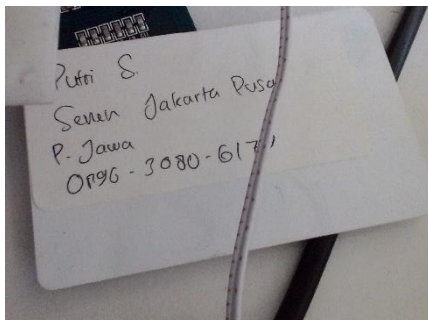 Putri S.
Senen Jakarta Pusa
P. Jawa
0896-3080-617